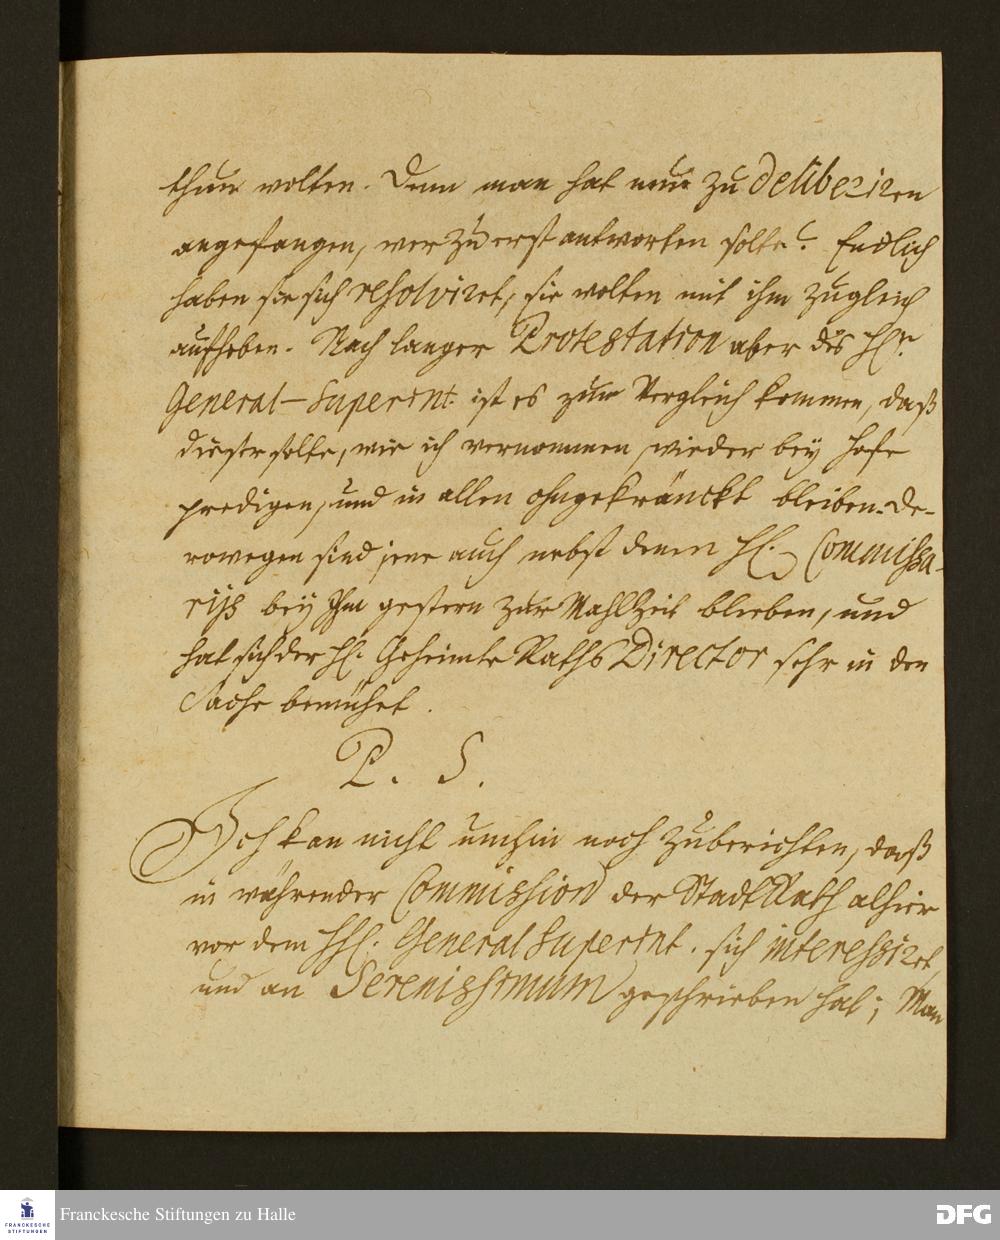 thun wolten. Denn man hat nun zu deliberiren
angefangen, wer zu erst antworten solte? Endlich
haben sie sich resolviret, sie wolten mit ihm zugleich
aufheben. Nach langer Protestation aber des H.
General-Superint. ist es zum Vergleich kommen, daß
dieser solte, wie ich vernommen, wieder bey Hofe
predigen, und in allen ohngekränckt bleiben. De-
rowegen sind jene auch nebst denen H. Commissa-
rijs bey Ihm gestern zur Mahlzeit blieben, und
hat sich der H. Geheimte Raths Director sehr in der
Sache bemühet.
P. S.
Ich kan nicht umhin noch zuberichten, daß
in währender Commission der Stadt Rath alhier
vor dem HH. General Superint. sich interessiret,
und an Serenissimum geschrieben hat; Man
Franckesche Stiftungen zu Halle
FRANCKESCHE
STIFTUNGEN
DFG